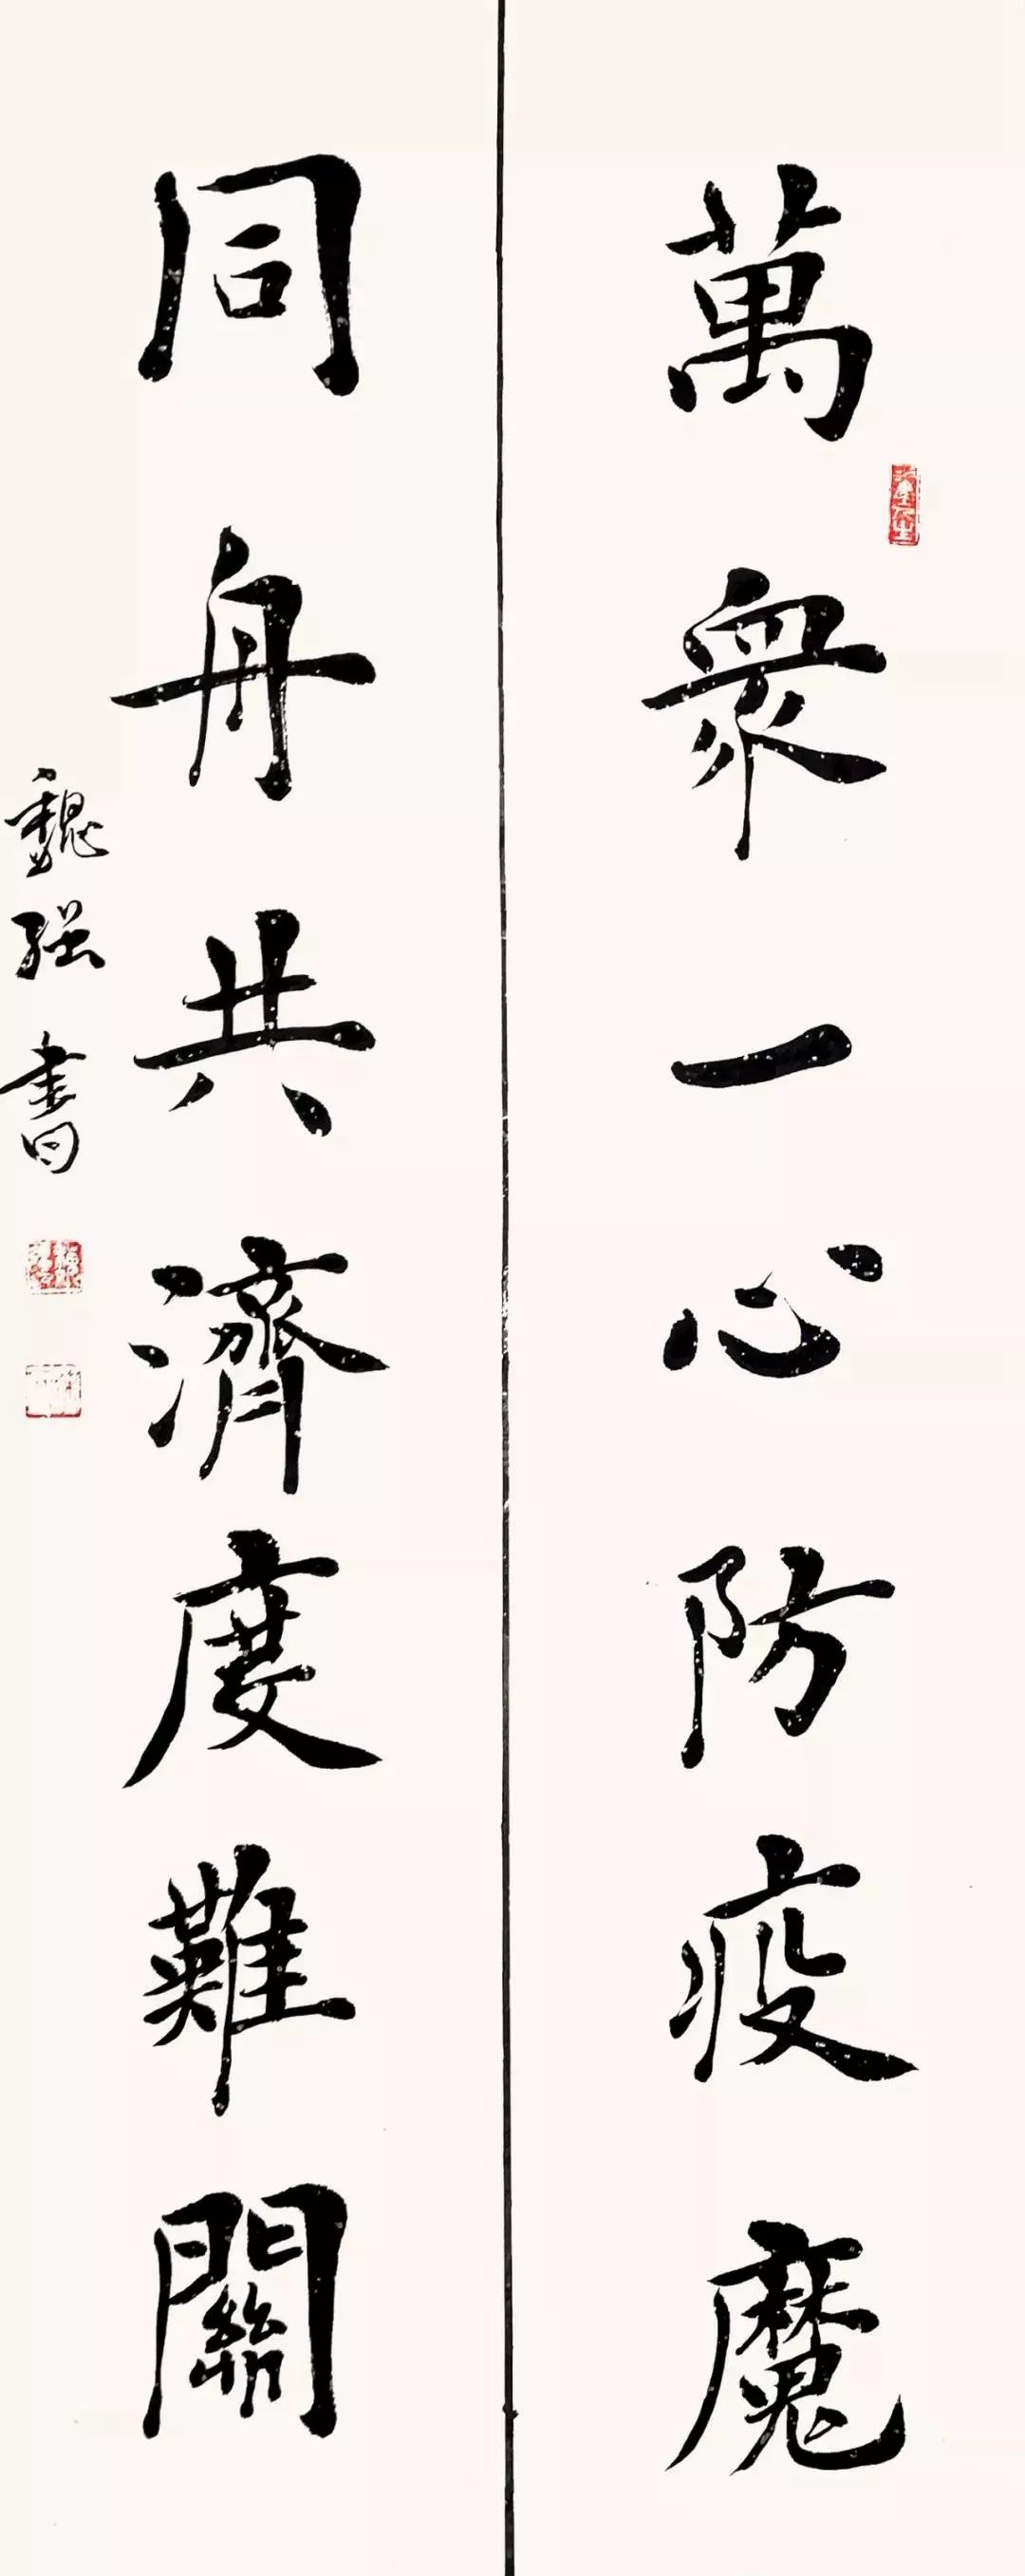 萬衆一心防疫魔
同舟共濟度難關
魏强書